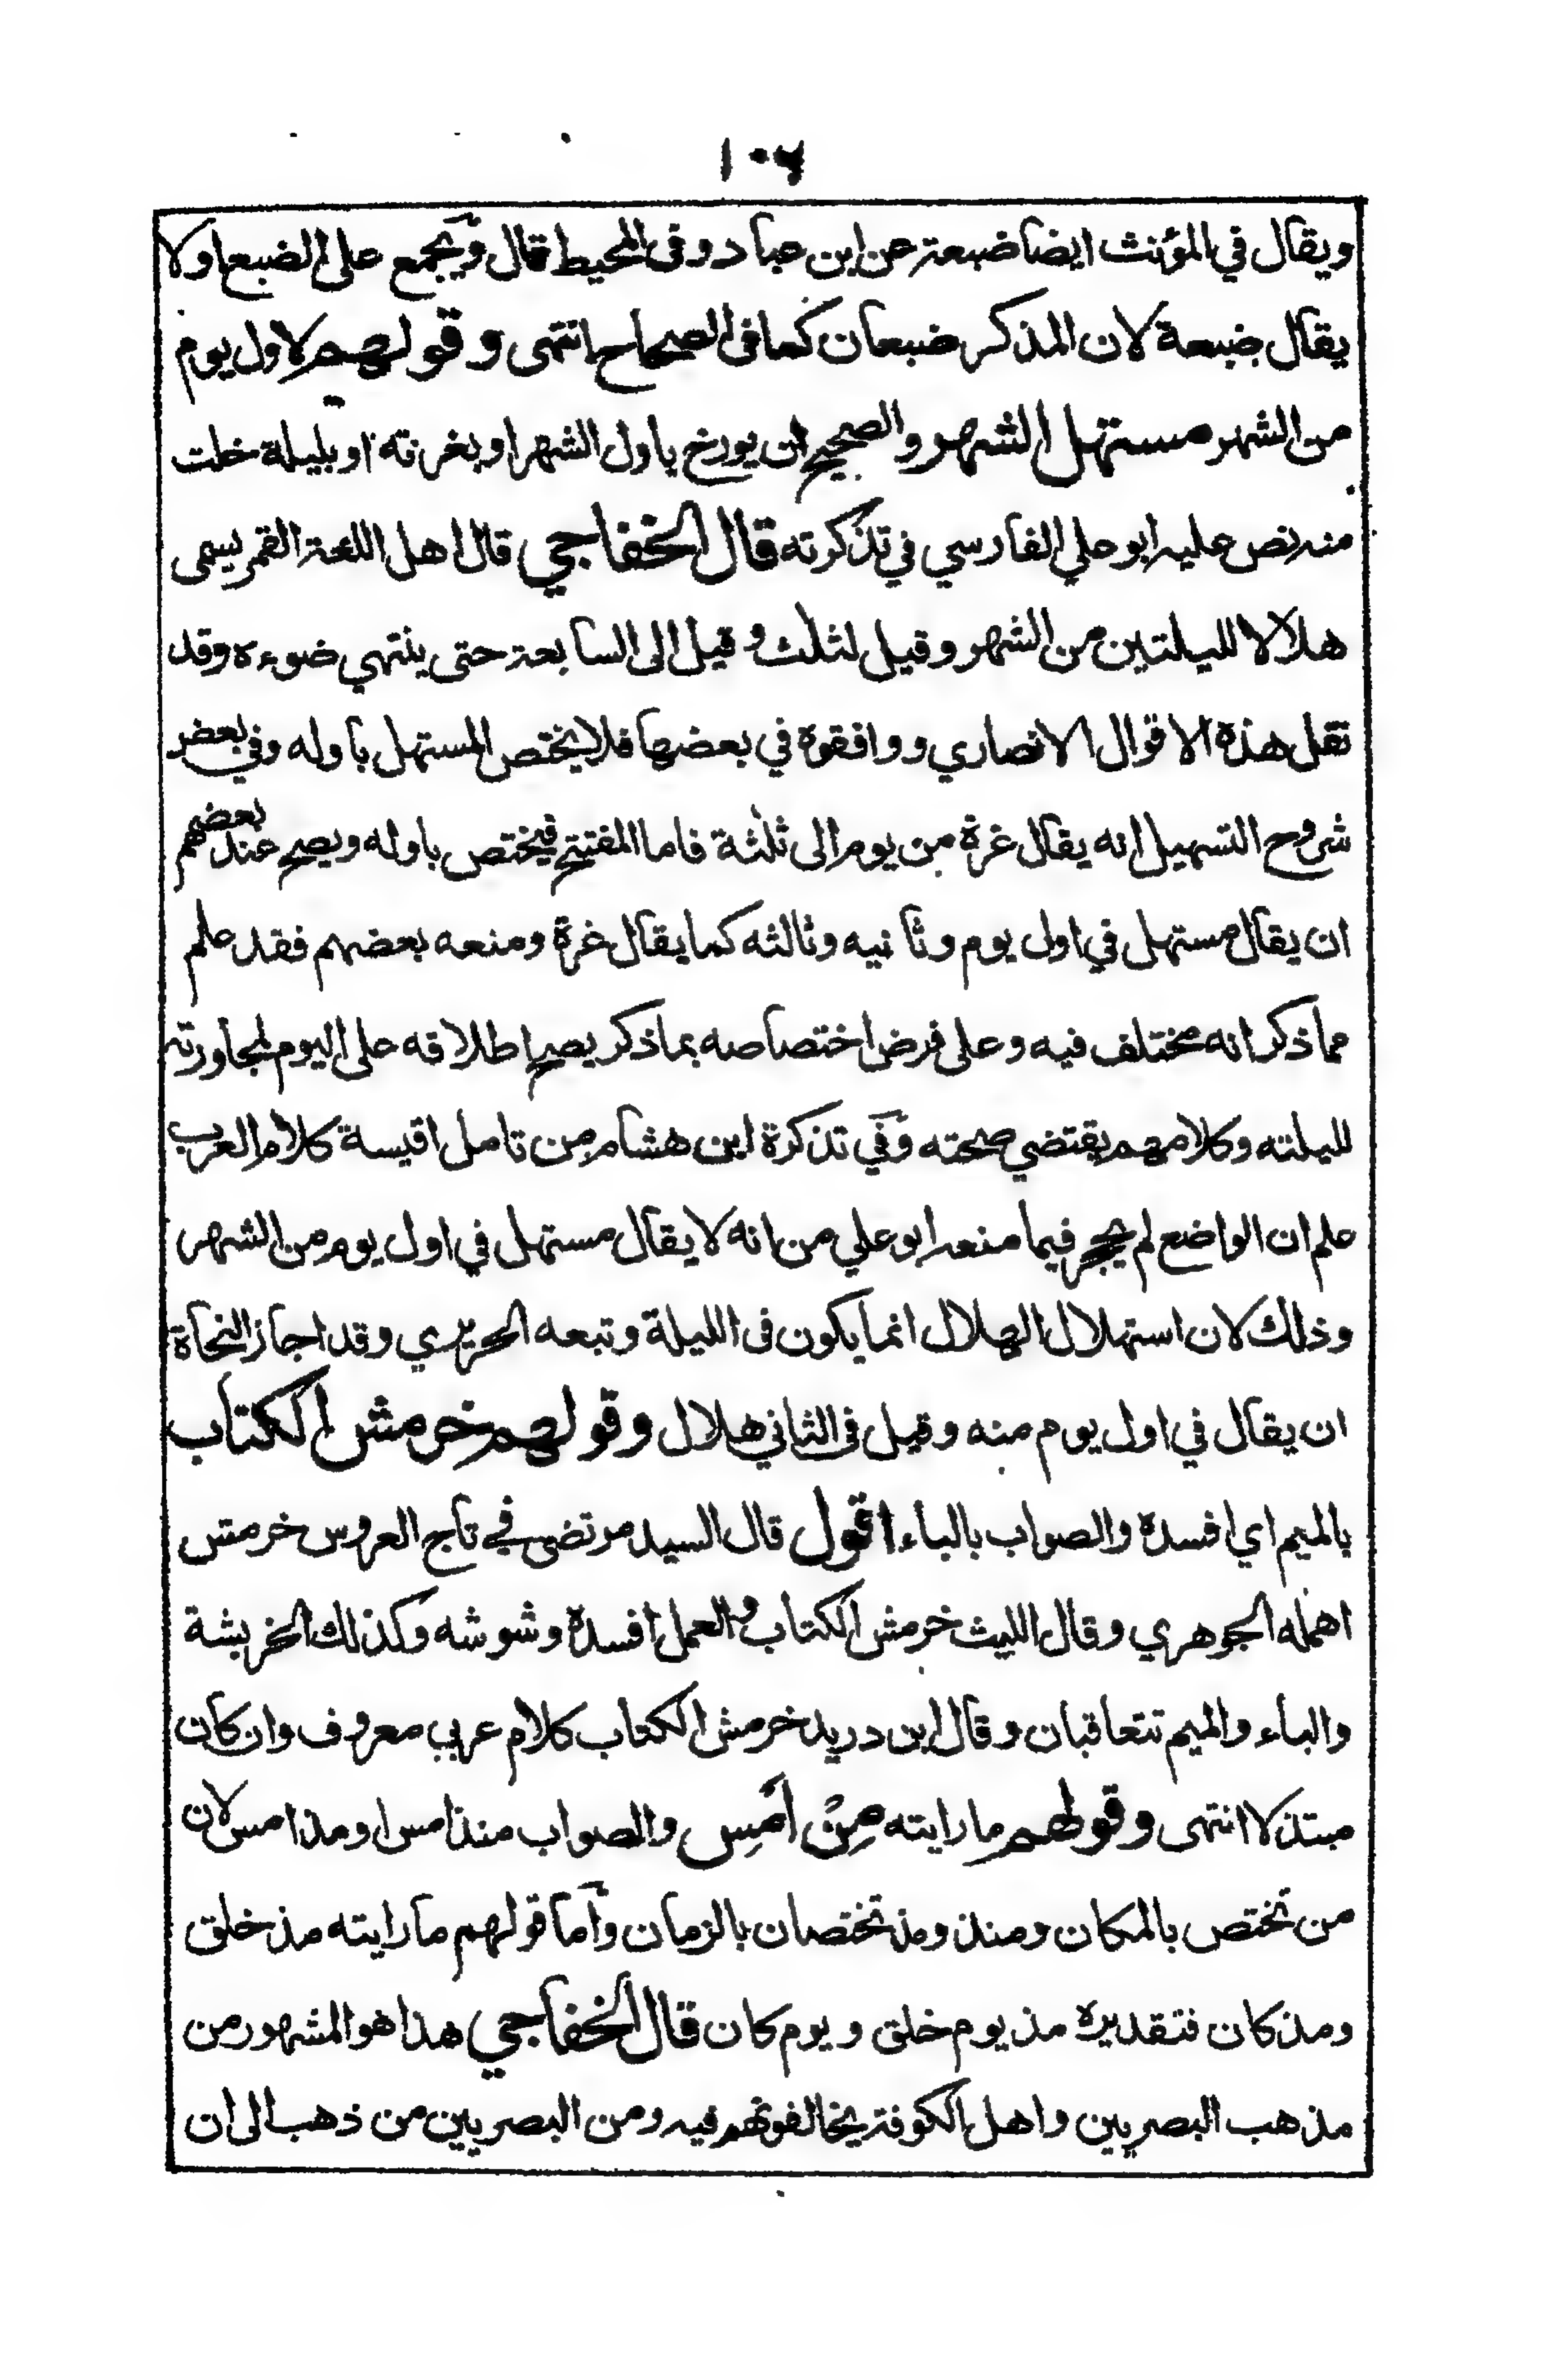 ١٠٦
ويقال في المؤنث ايضا ضبعة عن ابن عباد وفي المحيط قال ويجمع على الضبع اولا
يقال ضبعة لان المذكر ضبعان كما في الصحاح انتهى وقولهم لاول يوم
من الشهر مستهل الشهر والصحيح ان يورخ باول الشهر او بغرته او بليلة خلت
منه نص عليه ابو علي الفارسي في تذكرته قال الخفاجي قال اهل اللغة القمر يسمى
هلالا لليلتين من الشهر وقيل لثلث وقيل الى السابعة حتى ينتهي ضوءه وقد
نقل هذه الاقوال الانصاري ووافقوه في بعضها فلا يختص المستهل باوله وفي بعض
شروح التسهيل انه يقال غرة من يوم الى ثلثة فاما المفتتح فيختص باوله ويصح عند بعضهم
ان يقال مستهل في اول يوم وثانيه وثالثه كما يقال غرة ومنعه بعضهم فقد علم
مما ذكر انه مختلف فيه وعلى فرض اختصاصه بما ذكر يصح اطلاقه على اليوم لمجاورته
لليلته وكلامهم يقتضي صحته وفي تذكرة ابن هشام من تامل اقيسة كلام العرب
علم ان الواضع لم يحجر فيما منعه ابو علي من انه لا يقال مستهل في اول يوم من الشهر
وذلك لان استهلال الهلال انما يكون في الليلة وتبعه الحريري وقد اجاز النحاة
ان يقال في اول يوم منه وقيل في الثاني هلال وقولهم خرمش الكتاب
بالميم اي افسده والصواب بالباء اقول قال السيد مرتضى في تاج العروس خرمش
اهمله الجوهري وقال الليث خرمش الكتاب والعمل افسده وشوشه وكذلك الخربشة
والباء والميم تتعاقبان وقال ابن دريد خرمش الكتاب كلام عربي معروف وان كان
مبتذلا انتهى وقولهم ما رايته مِنْ اَمْسِ والصواب منذ امس او مذ امس لان
من تختص بالمكان ومنذ ومذ تختصان بالزمان واما قولهم ما رايته مذ خلق
ومذ كان فتقديره مذ يوم خلق ويوم كان قال الخفاجي هذا هو المشهور من
مذهب البصريين واهل الكوفة يخالفونهم فيه ومن البصريين من ذهب الى ان